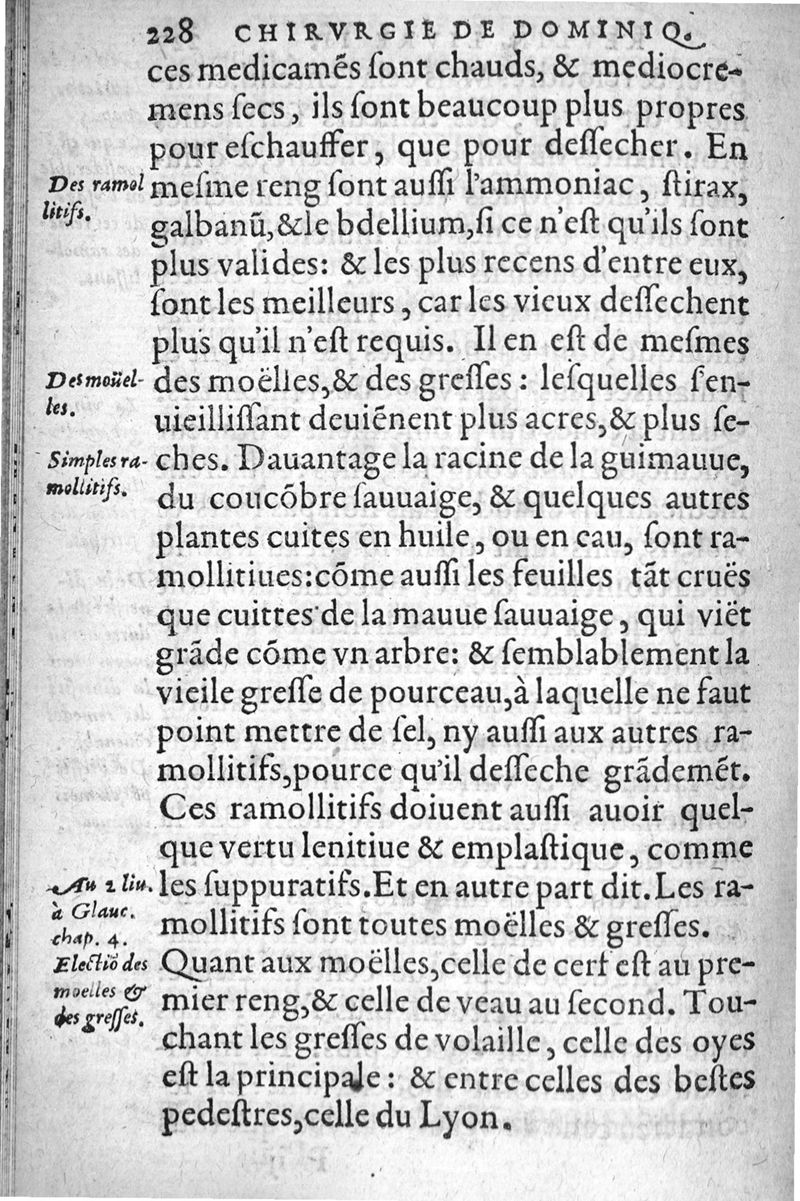 228 CHIRVRGIE DE DOMINIQ.
ces medicamẽs ſont chauds, & mediocre-
mens ſecs, ils ſont beaucoup plus propres
pour eſchauffer, que pour deſſecher. En
Des ramol
litifs.
meſme reng ſont auſſi l'ammoniac, ſtirax,
galbanũ,&le bdellium,ſi ce n'eſt qu'ils ſont
plus valides: & les plus recens d'entre eux,
ſont les meilleurs, car les vieux deſſechent
plus qu'il n'eſt requis. Il en eſt de meſmes
Des moüel-
les.
des moëlles,& des greſſes: leſquelles ſ'en-
uieilliſſant deuiẽnent plus acres,& plus ſe-
Simples ra-
mollitifs.
ches. Dauantage la racine de la guimauue,
du coucõbre ſauuaige, & quelques autres
plantes cuites en huile, ou en eau, ſont ra-
mollitiues:cõme auſſi les feuilles tãt cruës
que cuittes de la mauue ſauuaige, qui viẽt
grãde cõme vn arbre: & ſemblablement la
vieile greſſe de pourceau,à laquelle ne faut
point mettre de ſel, ny auſſi aux autres ra-
mollitifs,pource qu'il deſſeche grãdemẽt.
Ces ramollitifs doiuent auſſi auoir quel-
que vertu lenitiue & emplaſtique, comme
Au 2 liu.
à Glauc.
chap. 4.
les ſuppuratifs.Et en autre part dit.Les ra-
mollitifs ſont toutes moëlles & greſſes.
Electiõ des
moelles &
des greſſes.
Quant aux moëlles,celle de cerf eſt au pre-
mier reng,& celle de veau au ſecond. Tou-
chant les greſſes de volaille, celle des oyes
eſt la principale: & entre celles des beſtes
pedeſtres,celle du Lyon.